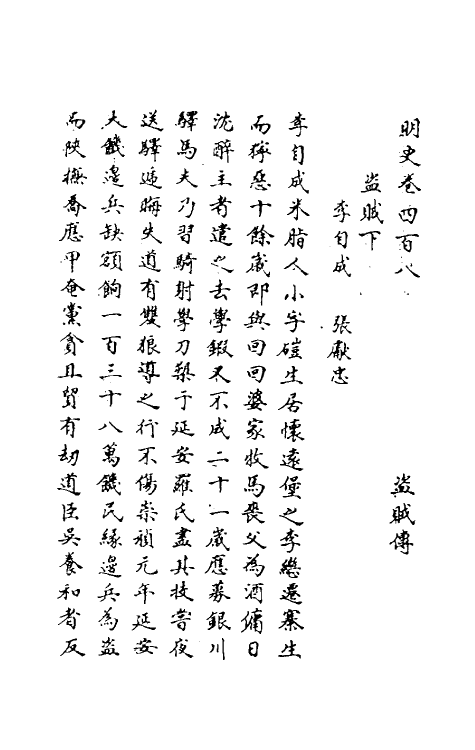 明史卷四百八
盜賊傳
盜賊下
李自成 張獻忠
李自成米脂人小字磓生居懷遠堡之李繼遷寨生
而獰惡十餘歲即與回回婆家牧馬喪父為酒傭日
沈醉主者遣之去學鍛又不成二十一歲應募銀川
驛馬夫乃習騎射學刀槊于延安羅氏盡其技嘗夜
送驛逓晦失道有雙狼導之行不傷崇禎元年延安
大饑邉兵缺額餉一百三十八萬饑民緣邉兵為盜
而陜撫喬應甲奄黨貪且貿有劫道臣吳養和者反